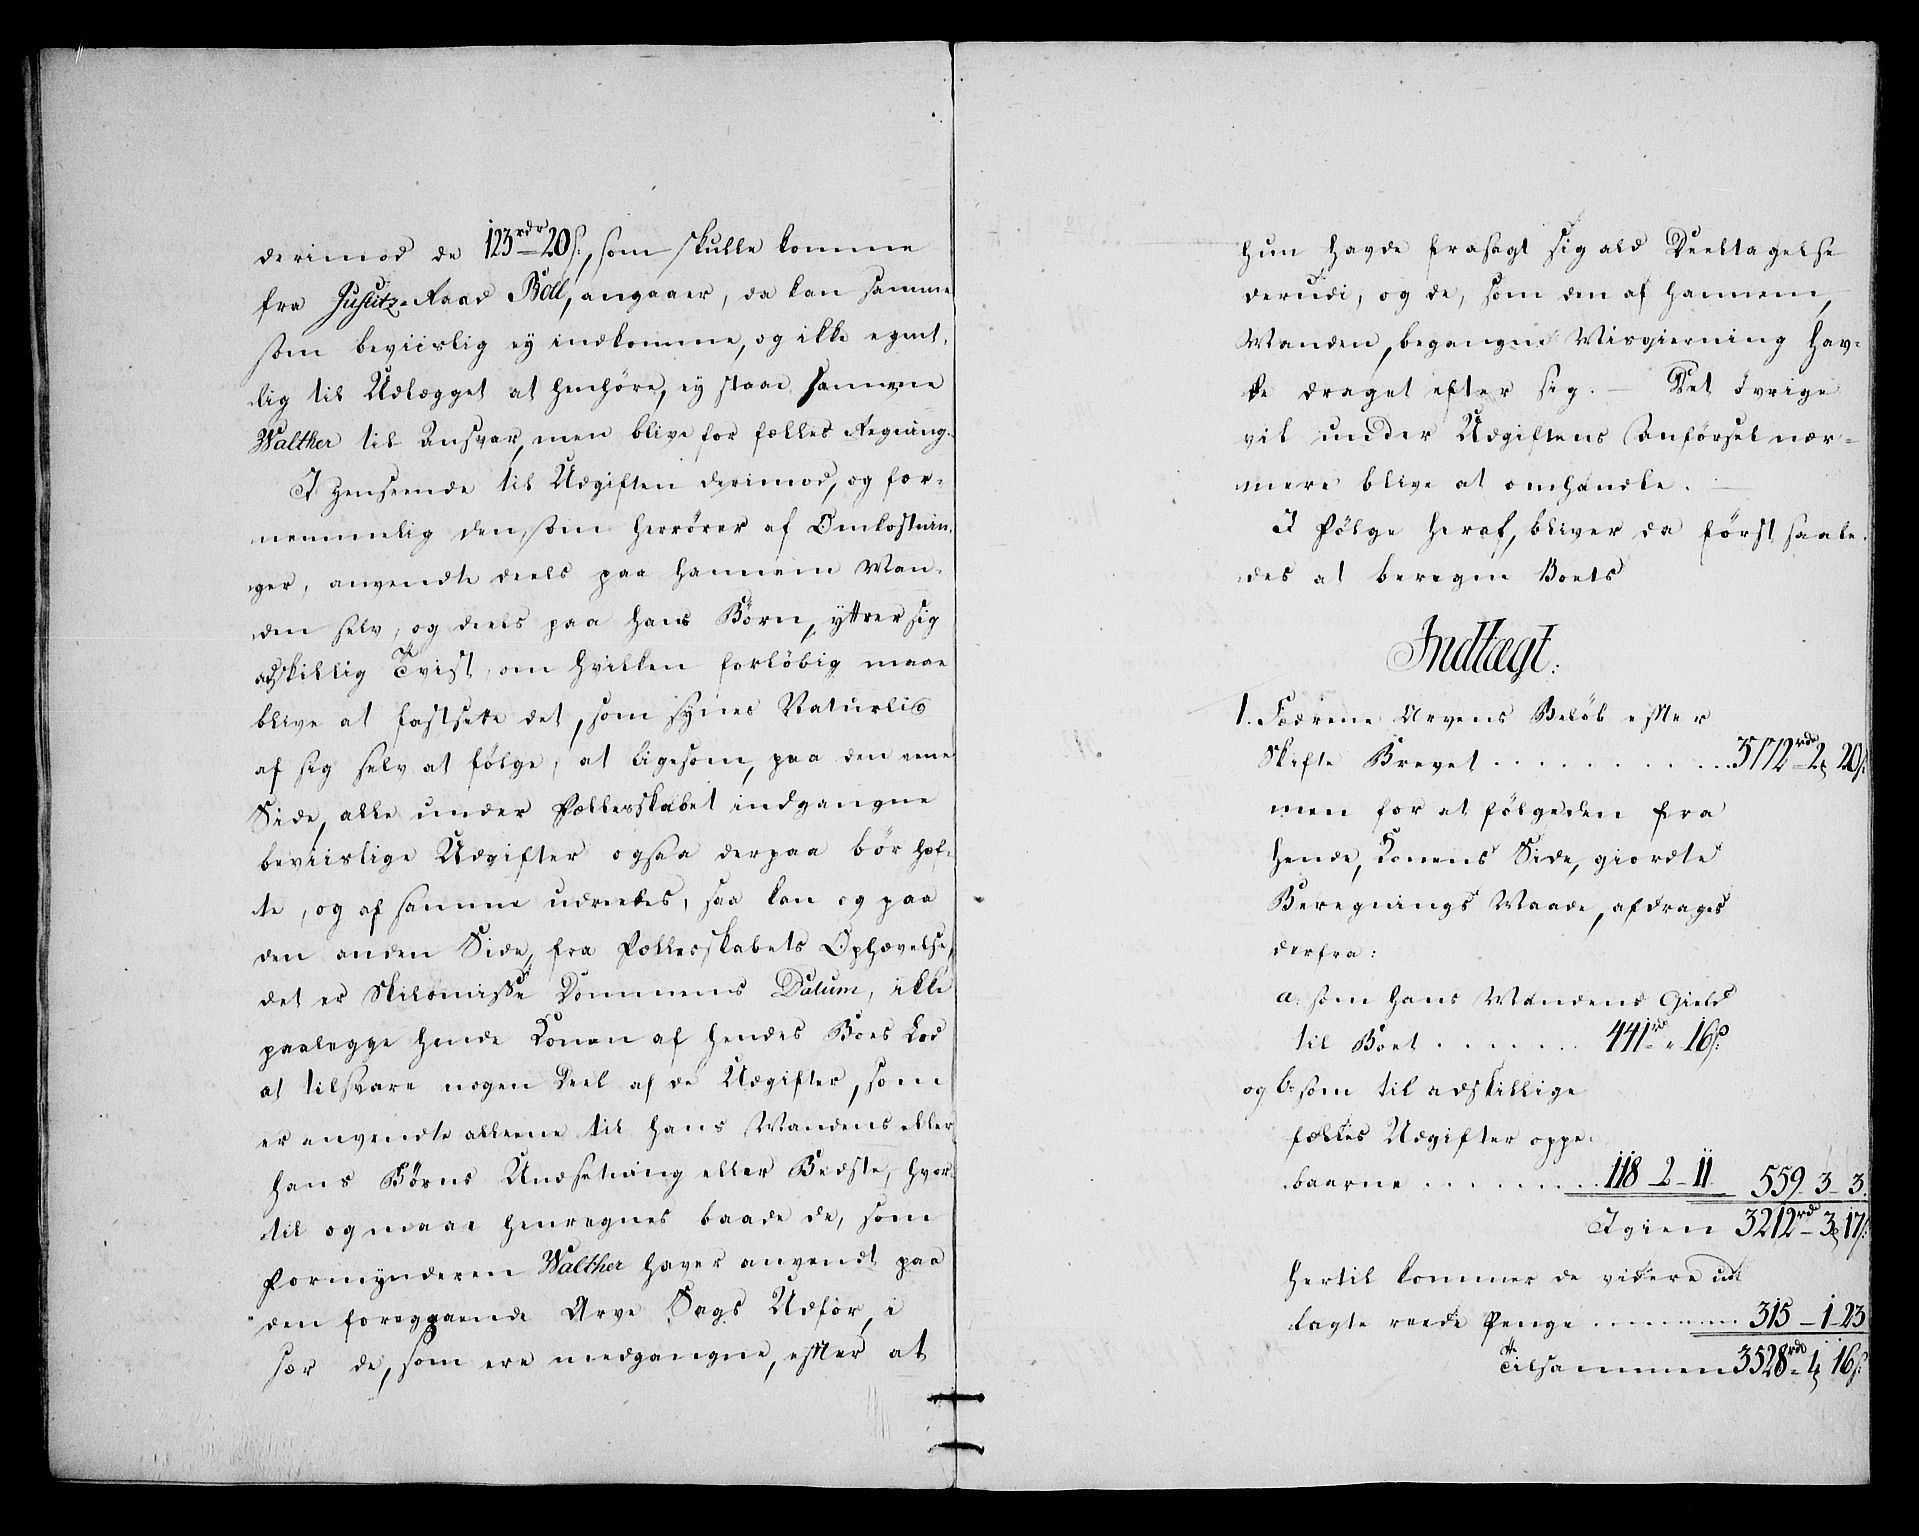 derimod de 123rdr 20 s:, som skulle komme
fra Justitz-Raad Boll, angaaer, da kan samme
som beviislig ey indkomme, og ikke egent-
lig til Udlægget at henhöre, ey staae samme
Walther til Ansvar, men blive for fælles Regning.
I Henseende til Udgiften derimod, og for-
nemmelig den, som herrörer af Omkostnin-
ger, anvendte deels paa hannem Man-
den selv, og deels paa hans Börn, yttrer sig
adskillig Tvist, om hvilken forlöbig maae
blive at fastsette det, som synes Naturlig
af sig selv at fölge, at ligesom, paa den eene
Side, alle under Fællesskabet indgangne
beviislige Udgifter ogsaa derpaa bör hæf-
te, og af samme udredes, saa kan og paa
den anden Side, fra Fællesskabets Ophævelse,
det er Skilsmisse Dommens Datum, ikke
paalegge hende Konen af hendes Boes Lod
at tilsvare nogen Deel af de Udgifter, som
er anvendte alleene til hans Mandens eller
hans Börns Undsetning eller Bedste, hvor-
til og maae henregnes baade de, som
Formynderen Walther haver anvendt paa
den foregaaende Arve Sags Udför, i
sær de, som ere medgangne, efter at
hun havde frasagt sig ald Deeltagelse
derudi, og de, som den af hannem,
Manden, begangne Misgierning hav-
de draget efter sig. – Det övrige
vil under Udgiftens Anförsel nær-
mere blive at omhandle. –
I Fölge heraf, bliver da först saale-
des at beregne Boets
Indtægt:
1. Fædrene Arvens Belöb efter
Skifte Brevet . . . . . . . . . . . 3772rdr 2 ʒ 20 s:
men for at fölge den fra
hende, Konens Side, giordte
Beregnings Maade, afdrages
derfra:
a: som hans Mandens Gield
til Boet . . . . . . . 441rd " 16 s:
og b: som til adskillige
fælles Udgifter oppe-
baarne . . . . . . . . . 118 - 2 - 11. 559 - 3 - 3.
Igien 3212rdr - 3 ʒ 17 s:
hertil kommer de videre ud-
lagte reede Penge . . . . . . . . . 315 - 1 - 23
Tilsammen 3528rdr - 1 ʒ 16 s: